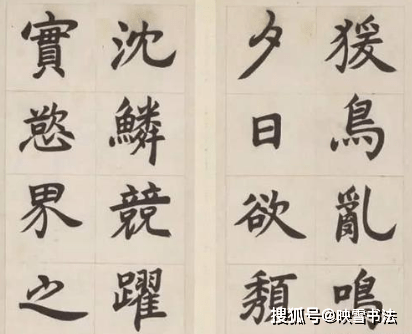 猨鳥亂鳴
夕日欲頹
沈鱗競躍
實慾界之
搜狐号@映雪书法